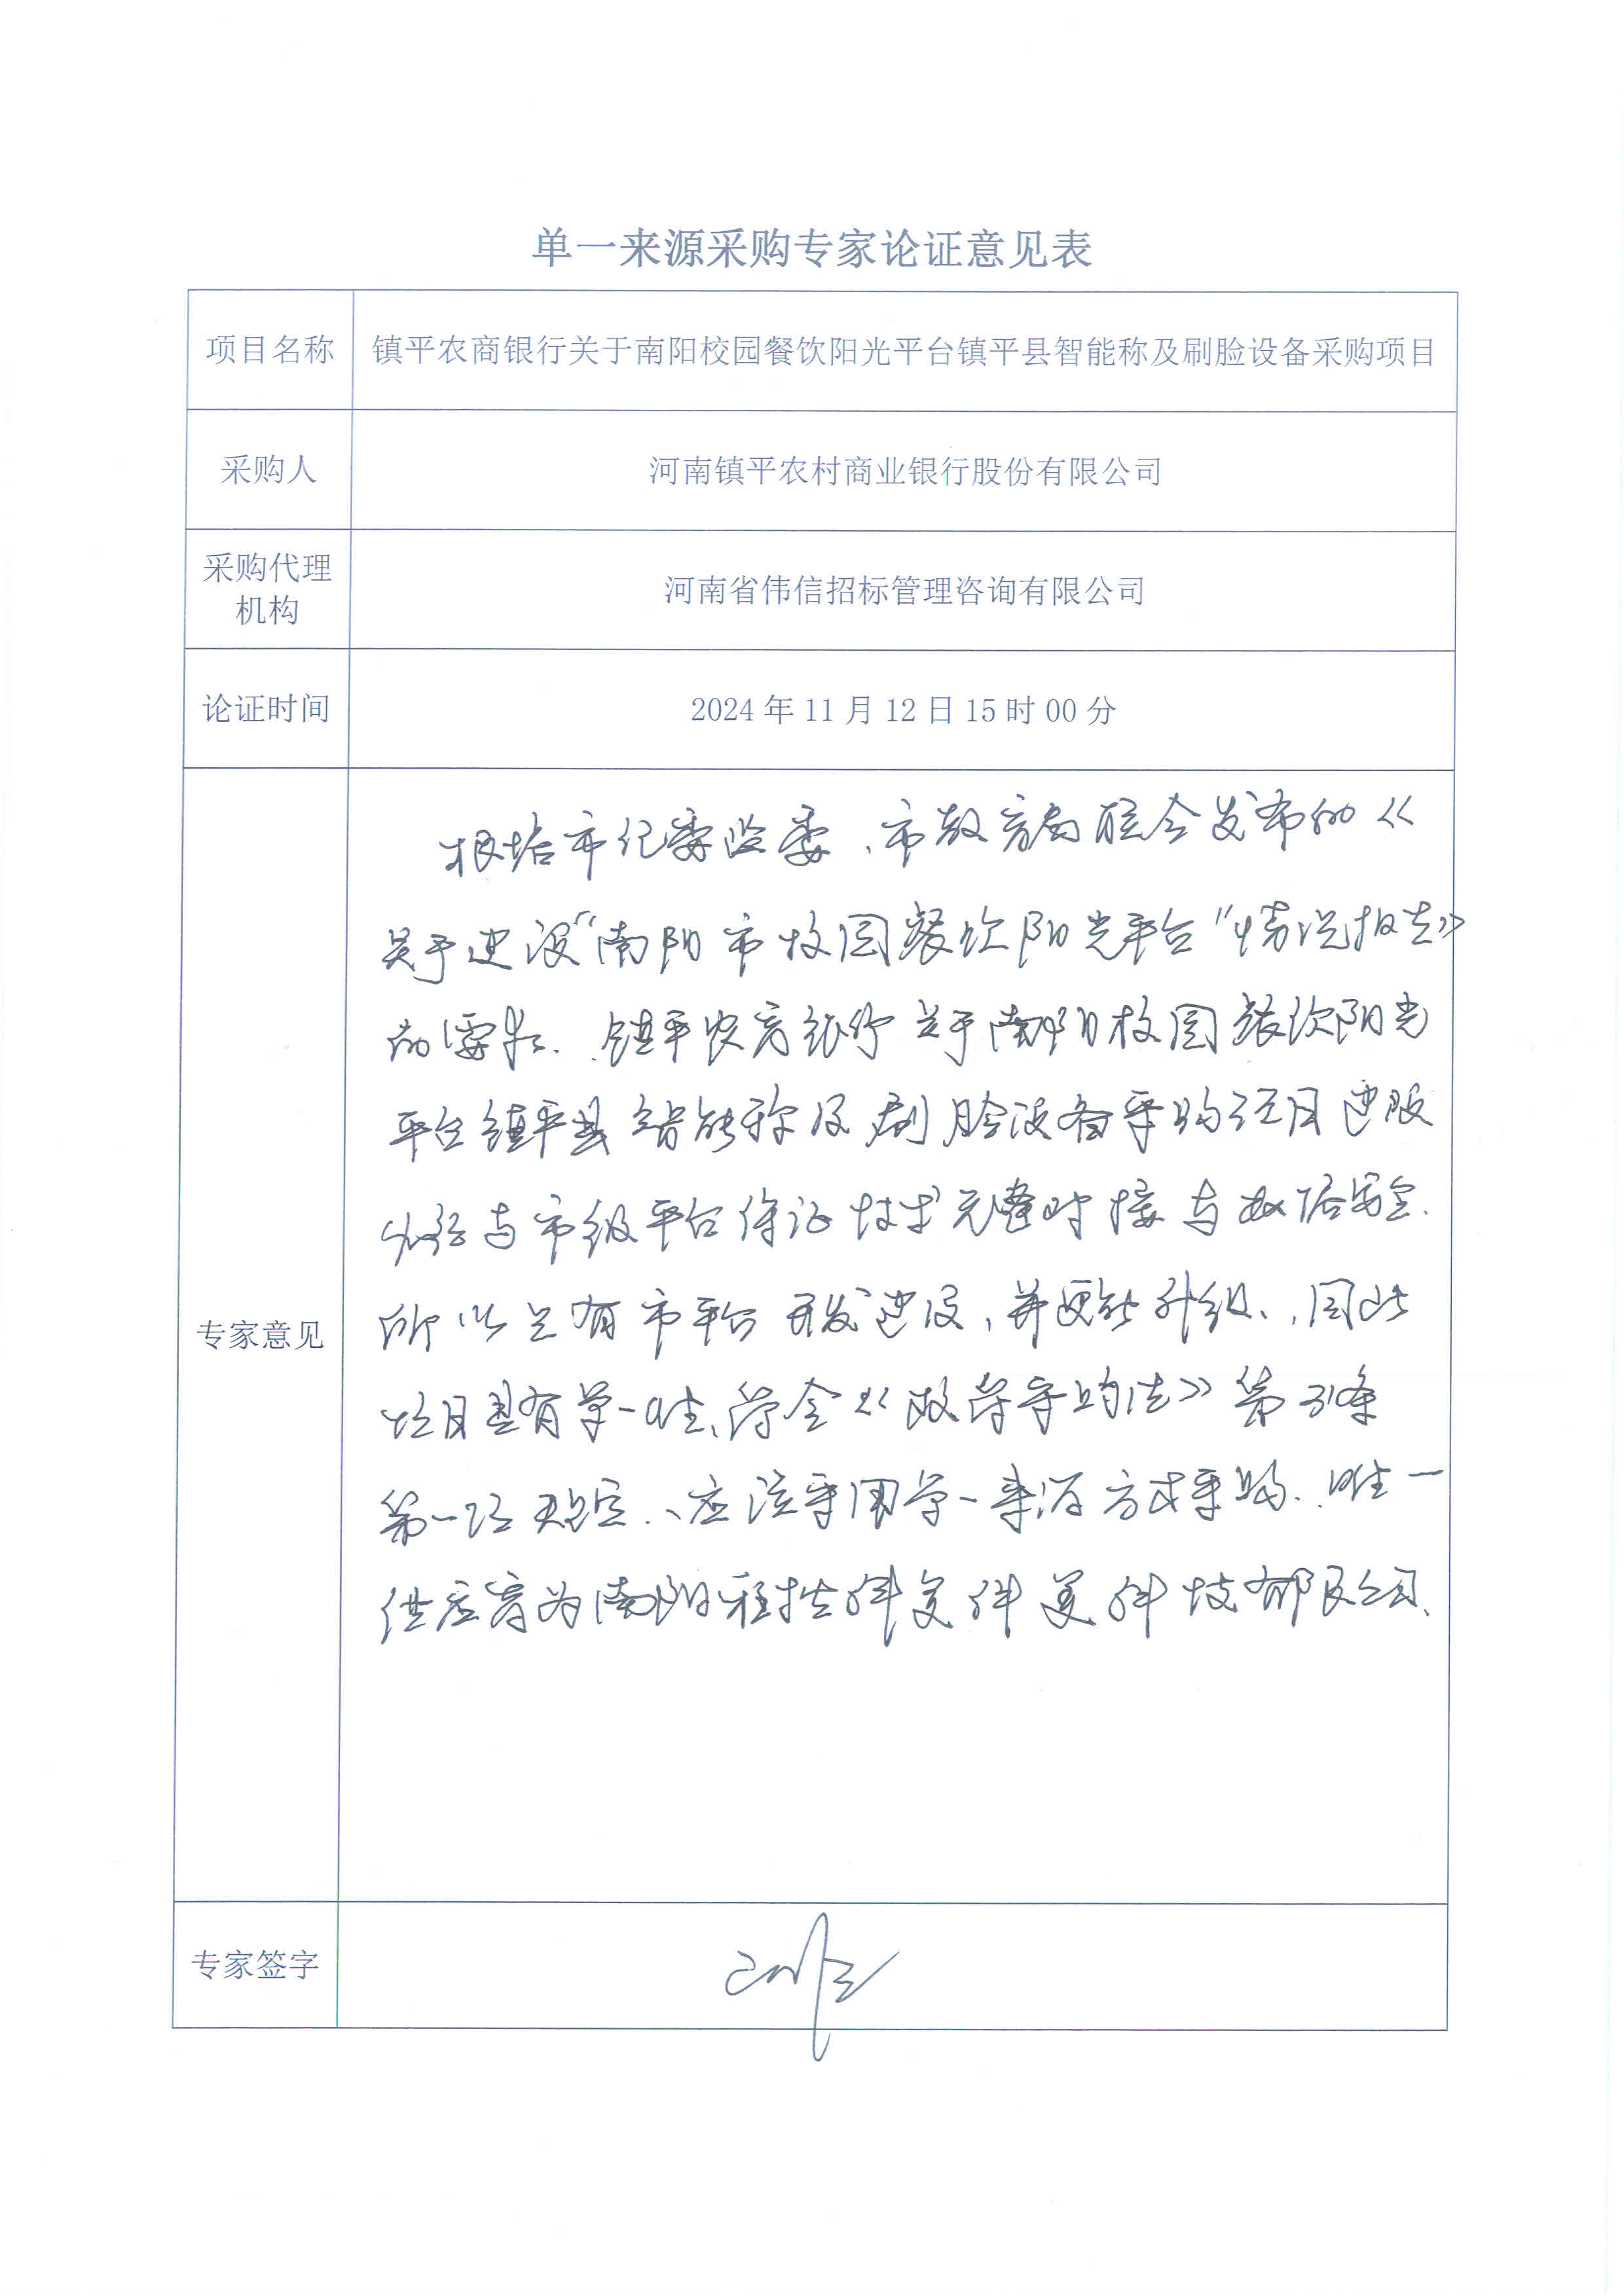 单一来源采购专家论证意见表
项目名称 镇平农商银行关于南阳校园餐饮阳光平台镇平县智能称及刷脸设备采购项目
采购人 河南镇平农村商业银行股份有限公司
采购代理机构 河南省伟信招标管理咨询有限公司
论证时间 2024年11月12日15时00分
专家意见
根据市纪委监委、市教育局联合发布的《
关于建设“南阳市校园餐饮阳光平台”情况报告》
的要求、镇平农商银行关于南阳校园餐饮阳光
平台镇平县智能称及刷脸设备采购项目建设
必须与市级平台保证技术完整对接与数据安全.
所以只有市平台开发建设,并更能升级、因此
项目具有单一性、符合《政府采购法》第31条
第一项规定、应该采用单一来源方式采购.唯一
供应商为南阳 科技有限公司、
专家签字